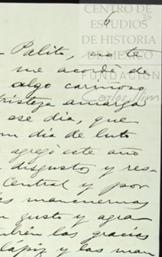 CENTRO DE
ESTUDIOS
DE HISTORIA
DE MÉXICO
FUNDACIÓN
Palito, no te
me acordé de
algo carinoso
tristeza amarga
ese día, que
un día de luto
agregó este año
disgusto y res
Central y por
gusto y agra
las gracias
lápiz y las man